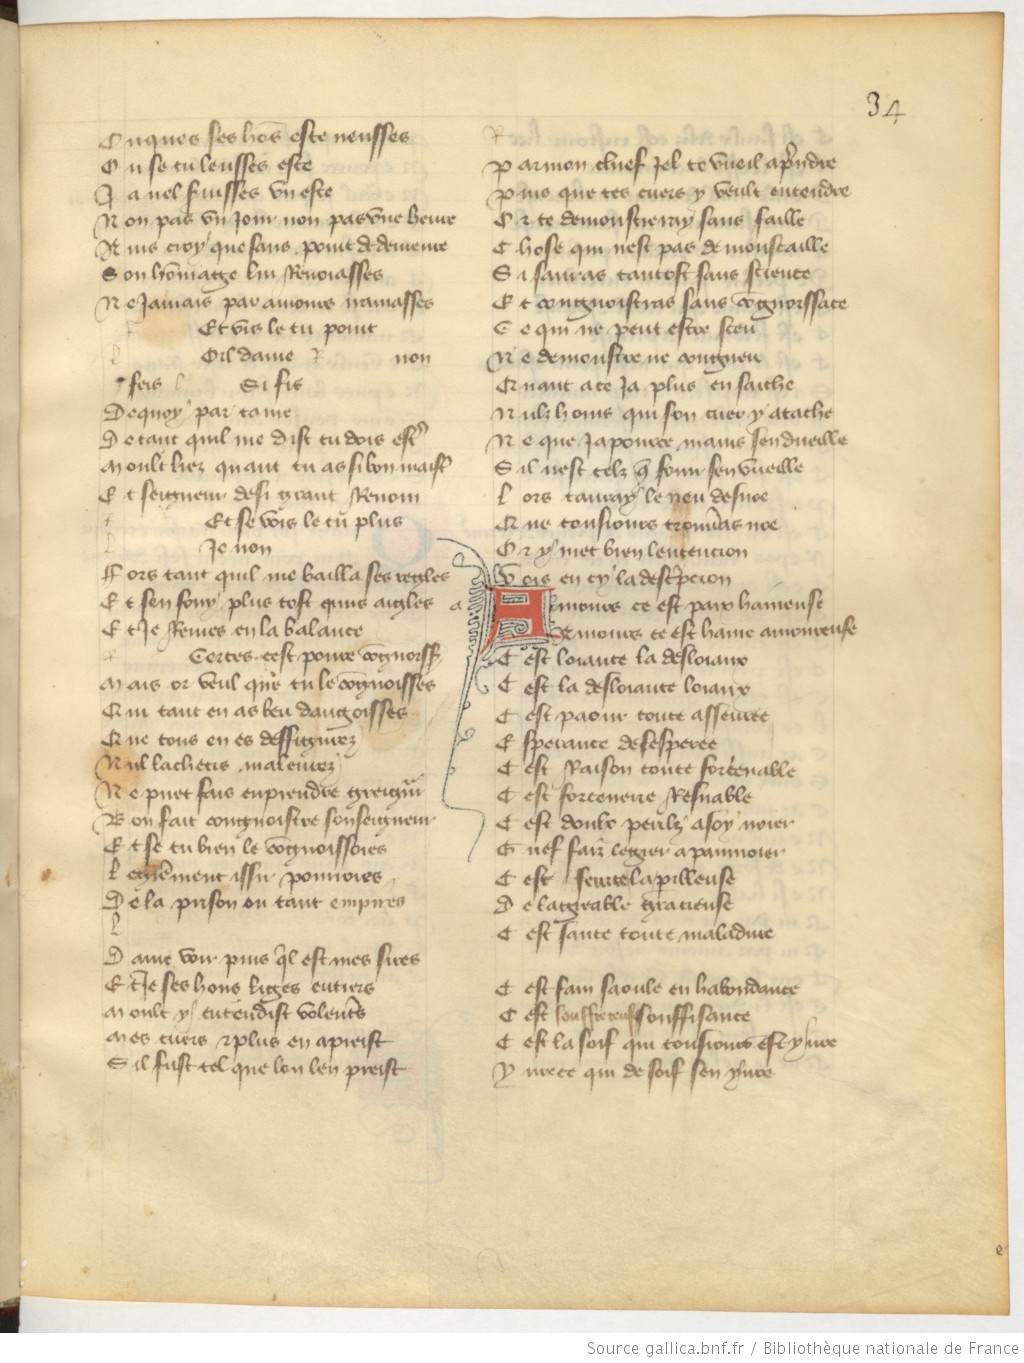 34
Onques ses hōs este neusses
Ou se tu leusses este
Ja nel fuisses un este
Non pas un Jour non pas une heure
Ains croy que sans point de demeure
Son hōmaige lui Renoiasses
Ne Jamais par amours namasses
Et vis le tu point
Oil dame R non
feis l Si fis
De quoy par tame
De tant quil me dist tu dois estr̄
Moult liez quant tu as si bon maistr̄
Et seigneur de si grant Renom
Et se vois le tu plus
Je non
Fors tant quil me bailla ses regles
Et sen fouy plus tost quns aigles
Et Je Remes en la balance
Certes cest poure
Mais or veul que tu le cōgnoisses
Qui tant en as beu dangoisses
Que tous en es deffigurez
Nul lachetis maleurez
Ne puet fais enprendre greign̄r
Bon fait congnoistre son seigneur
Et se tu bien le cōgnoissoies
Legierement issir pourroies
De la prison ou tant empires
l
Dame voir puis ql est mes sires
Et Je ses hons liges entiers
Moult y entendist volent̄s
Mes cuers ⁊ plus en apreist
Sil fust tel que lon len preist
R
Par mon chief Jel te vueil ap̄ndre
Puis que tes cuers y veult entendre
Or te demonstreray sans faille
Chose qui nest pas demonstraille
Si sauras tantost sans science
Et congnoistras sans cōgnoissāce
Ce qui ne peut estre sceu
Ne demonstre ne congneu
Quant a ce Ja plus en saiche
Nulz homs qui son cuer y atache
Ne que Ja pource mains sen dueille
Sil nest telz q̄ fouir sen vueille
Lors tauray le neu desnoe
Que tousiours trouuas noe
Or y met bien lentencion
Vois en cy la descp̄cion
a Amours ce est paix haineuse
Amours ce est haine amoureuse
Cest loiaute la desloiaux
Cest la desloiaute loiaux
Cest paour toute asseuree
Esperance desesperee
Cest Raison toute forcenable
Cest forcenerie Resnable
Cest doulx perilz a soy noier
Grief faiz legier a paumoier
Cest
De laigreable gracieuse
Cest sante toute maladiue
Cest fain saoule en habondance
Cest souffisance
Cest la soif qui tousiours est yure
Yurece qui de soif sen yure
e
Source gallica.bnf.fr / Bibliothèque nationale de France